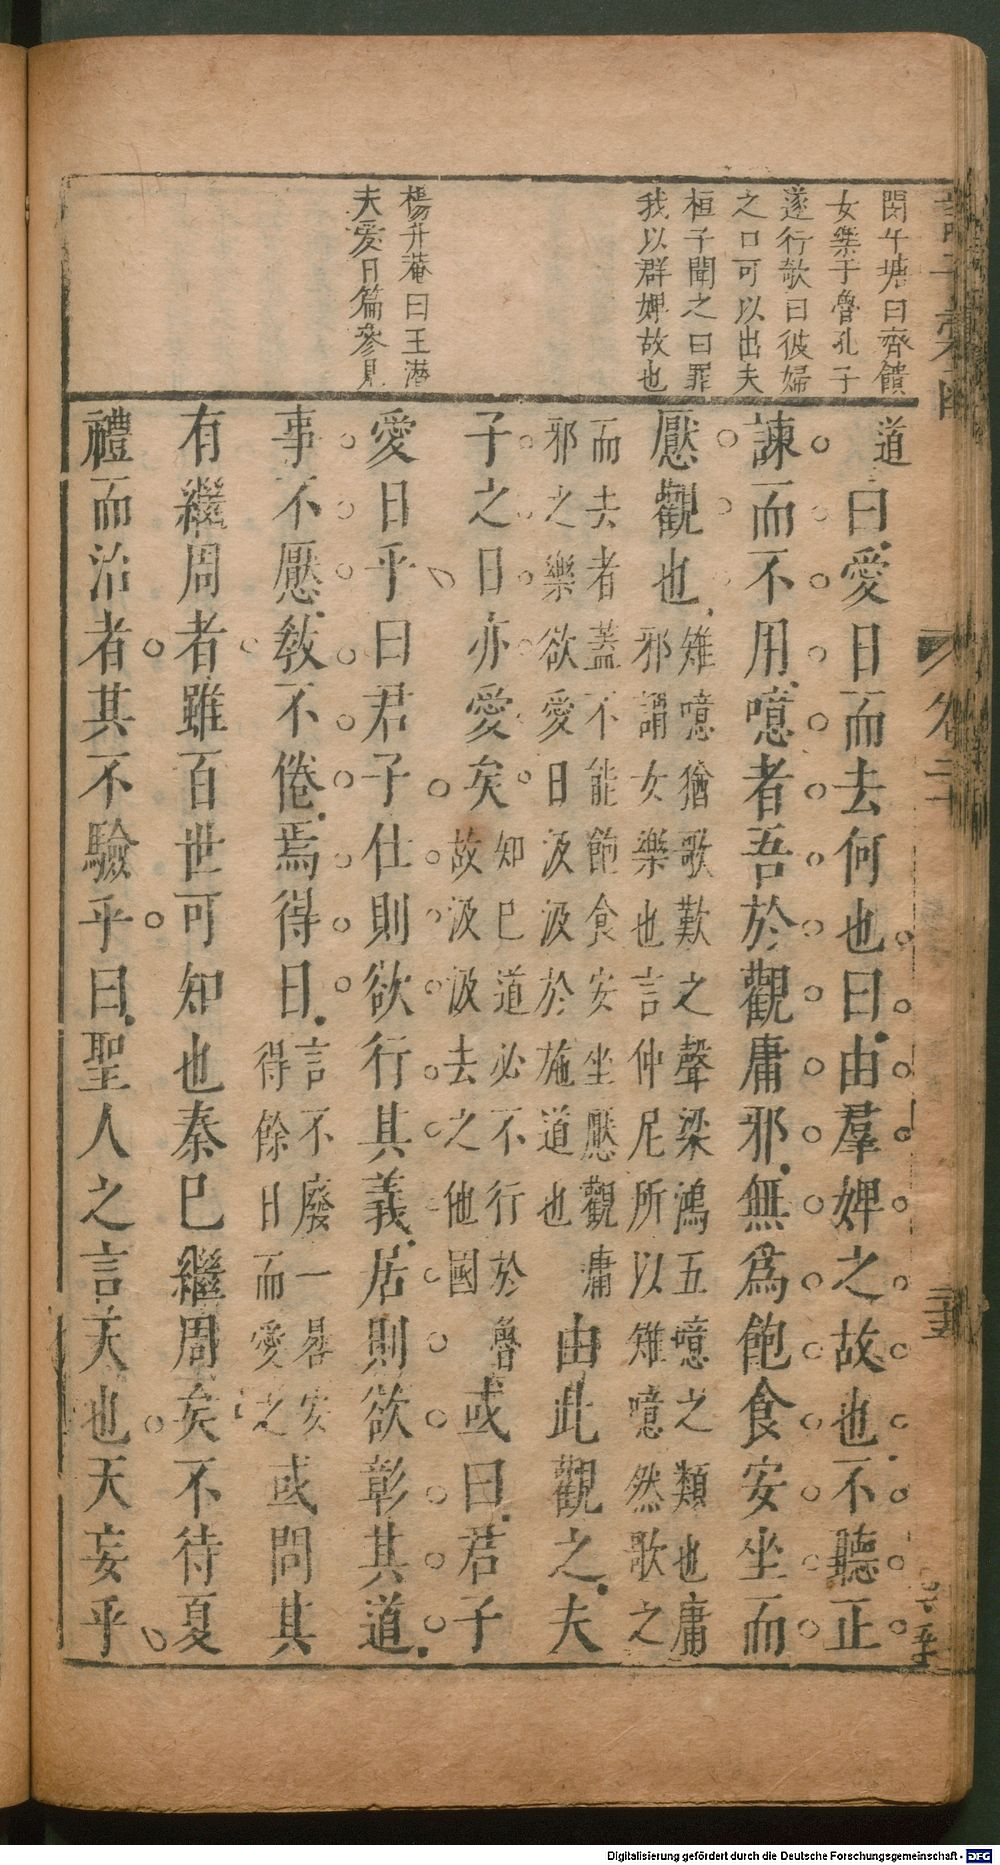 閔午塘曰齊饋
女樂于魯孔子
遂行歌曰彼婦
之口可以出夫
桓子聞之曰罪
我以群婢故也
楊升菴曰王潜
夫愛日篇參見
道
曰愛日而去何也曰由羣婢之故也不聽正
諫而不用噫者吾於觀庸邪無爲飽食安坐而
厭觀也雉噫猶歌歎之聲梁鴻五噫之類也庸
邪謂女樂也言仲尼所以雉噫然歌之
而去者蓋不能飽食安坐厭觀庸
邪之樂欲愛日汲汲於施道也由此觀之夫
子之日亦愛矣知已道必不行於魯
故汲汲去之他國或曰君子
愛日乎曰君子仕則欲行其義居則欲彰其道
事不厭教不倦焉得日言不廢一晷安
得餘日而愛之或問其
有繼周者雖百世可知也秦已繼周矣不待夏
禮而治者其不驗乎曰聖人之言天也天妄乎
卷二十
Digitalisierung gefördert durch die Deutsche Forschungsgemeinschaft - DFG